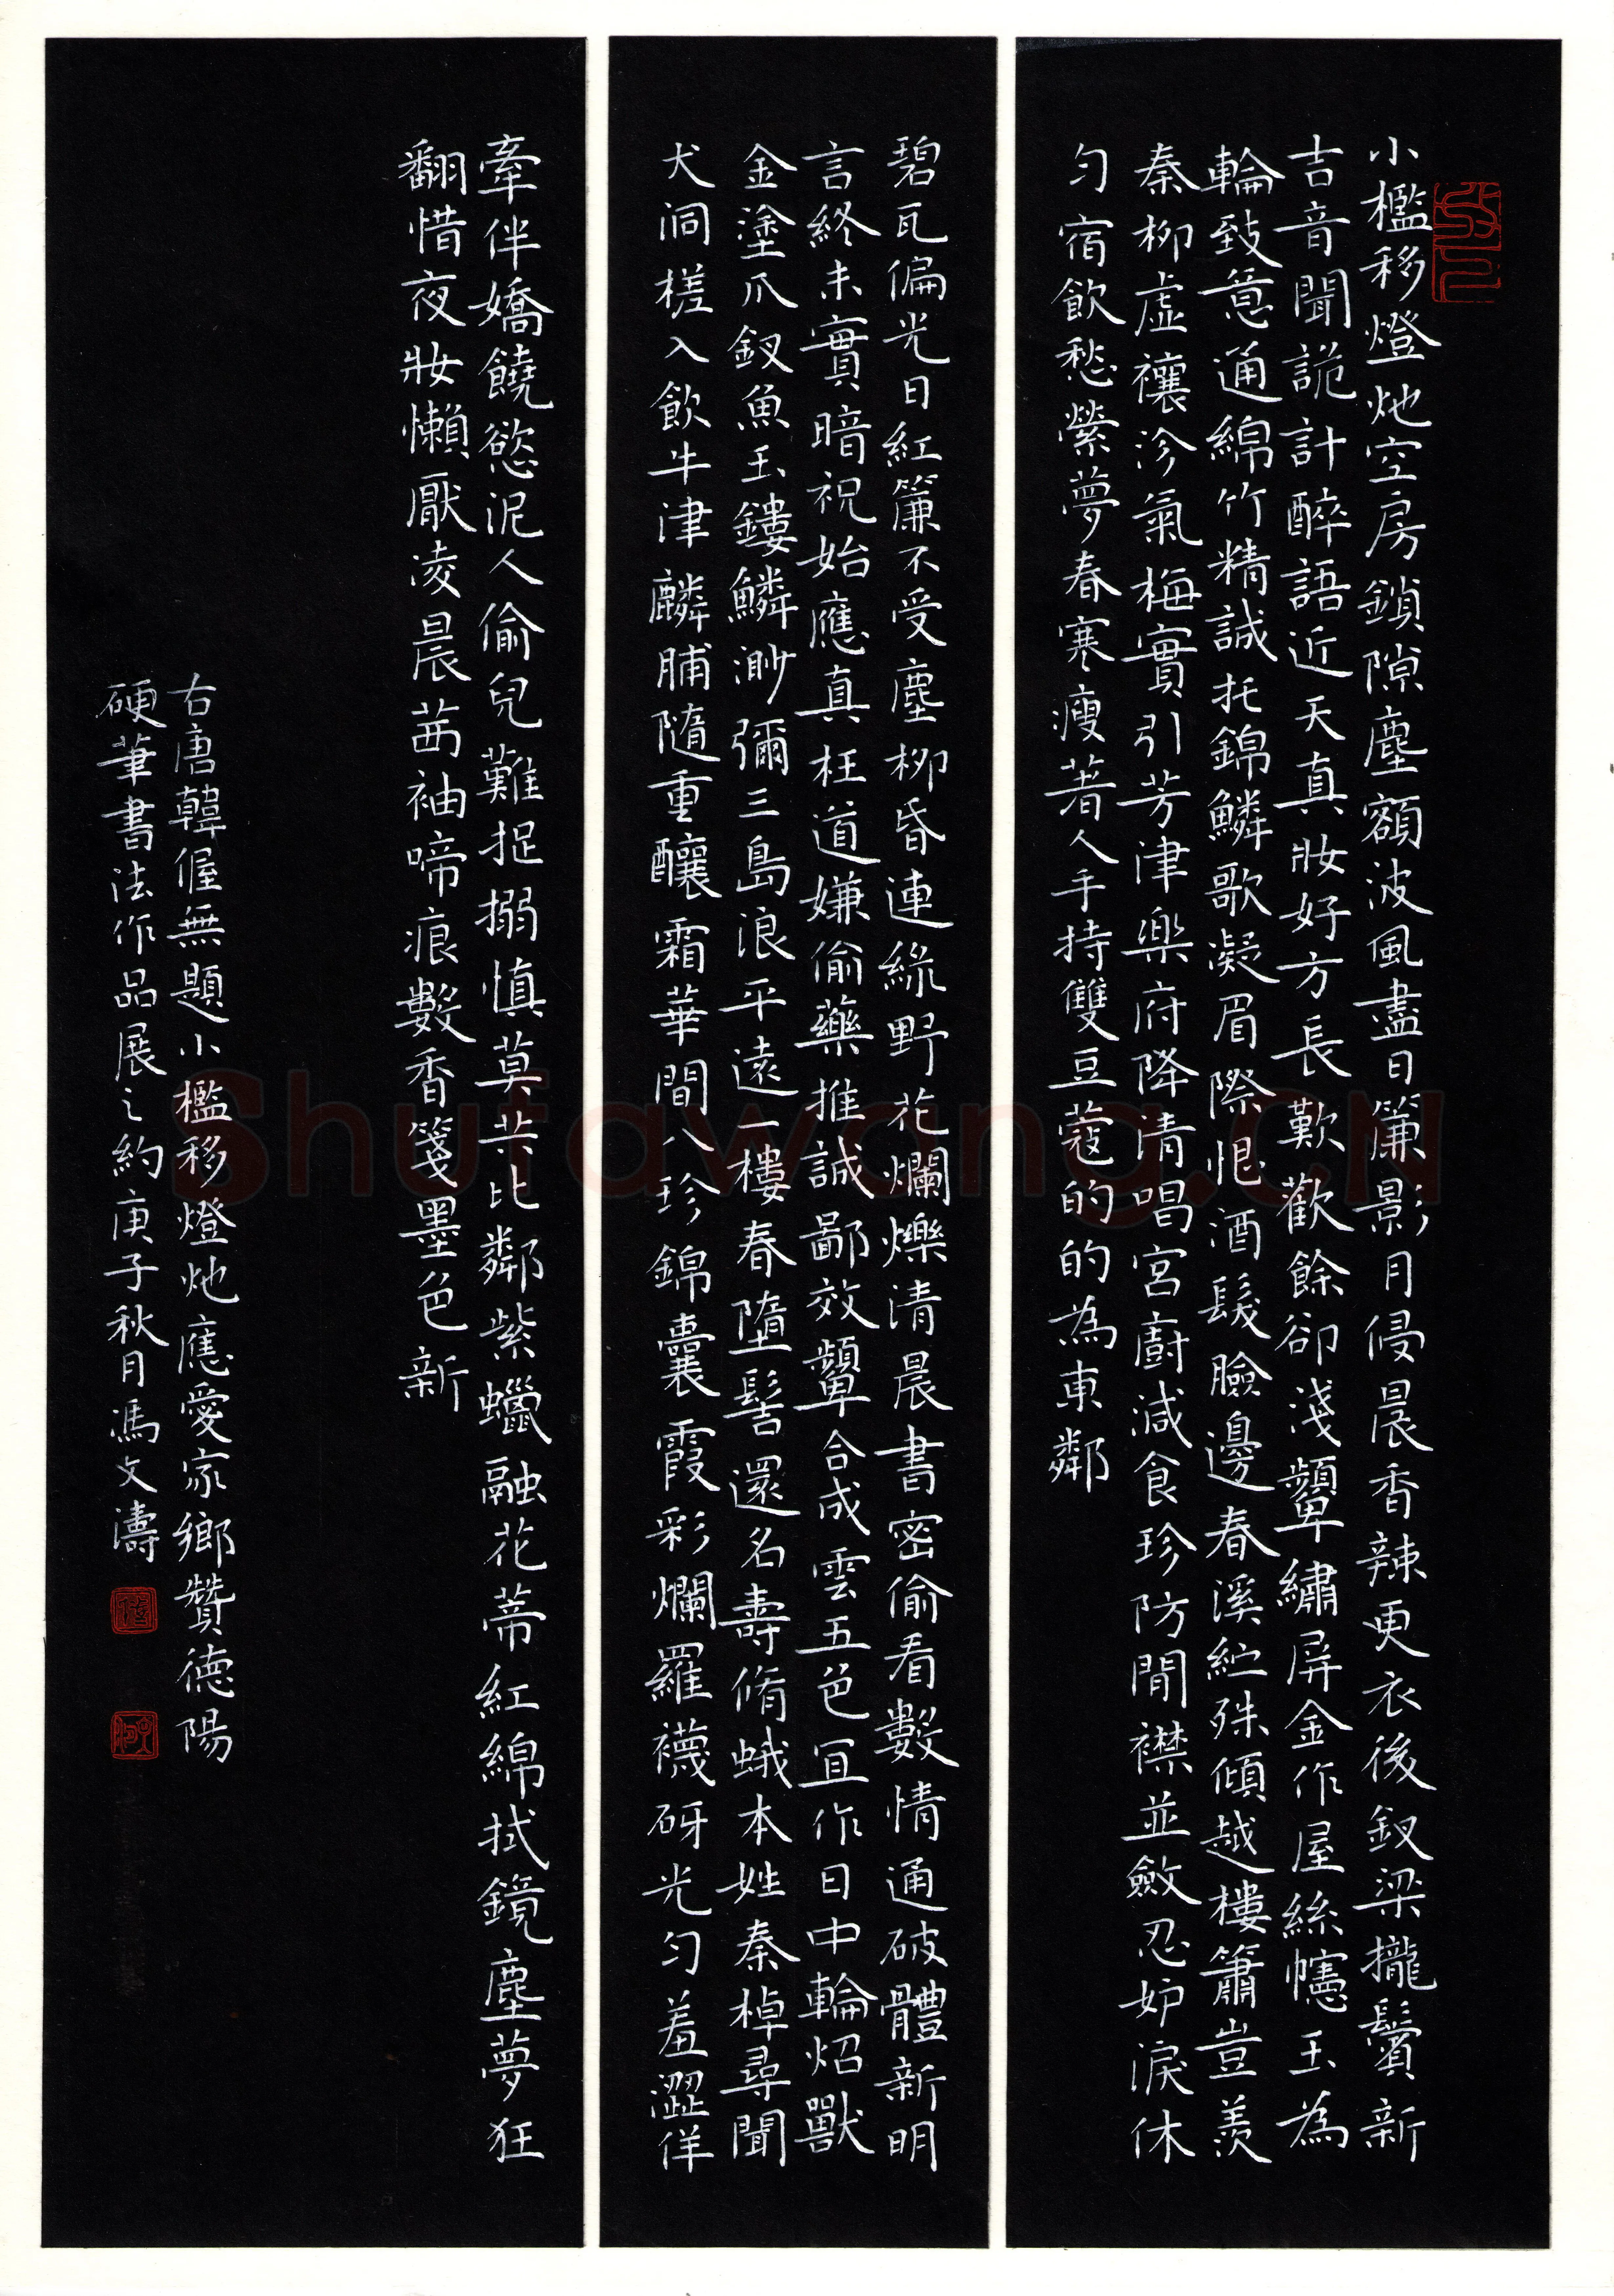 小檻移燈灺空房鎖隙塵額波風盡日簾影月侵晨香辣更衣後釵梁攏鬢新
吉音聞詭計醉語近天真妝好方長歎歡餘卻淺顰繡屏金作屋絲幰玉為
輪致意通綿竹精誠托錦鱗歌凝眉際恨酒髮臉邊春溪紅殊傾越樓簫豈羨
秦柳虛禳沴氣梅實引芳津樂府降清唱宮廚減食珍防閒襟並斂忍妒淚休
勻宿飲愁縈夢春寒瘦著人手持雙豆蔻的的為東鄰
碧瓦偏光日紅簾不受塵柳昏連綠野花爛爍清晨書密偷看數情通破體新明
言終未實暗祝始應真枉道嫌偷藥推誠鄙效顰合成雲五色宜作日中輪炤獸
金塗爪釵魚玉鏤鱗渺瀰三島浪平遠一樓春墮髻還名壽脩蛾本姓秦棹尋聞
犬洞槎入飲牛津麟脯隨重釀霜華間八珍錦囊霞彩爛羅襪砑光勻羞澀佯
牽伴嬌饒慾泥人偷兒難捉搦慎莫共比鄰紫蠟融花蒂紅綿拭鏡塵夢狂
翻惜夜妝懶厭凌晨茜袖啼痕數香箋墨色新
右唐韓偓無題小檻移燈灺應愛家鄉贊德陽
硬筆書法作品展之約庚子秋月馮文濤
Shufawang.CN